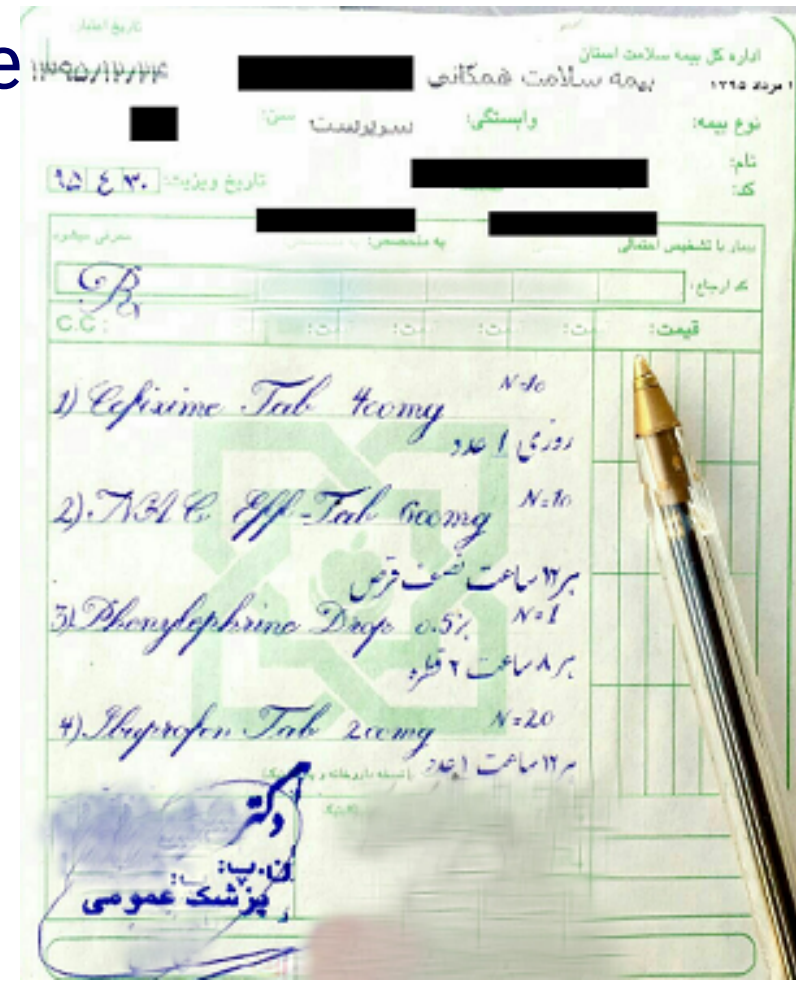 e
تاریخ اعتبار:
اداره کل بیمه سلامت استان
۱۳۹۵/۱۲/۲۴
بیمه سلامت همگانی
۱ مرداد ۱۳۹۵
نوع بیمه:
وابستگی:
سرپرست
سن:
نام:
کد:
تاریخ ویزیت:
۳۰ ۴ ۹۵
بیمار با تشخیص احتمالی
به متخصص:
معرفی میشود
کد ارجاع:
Rx
C.C:
قیمت:
1) Cefixime Tab 400mg N=10
روزی 1 عدد
2) NAC Eff-Tab 600mg N=10
هر ۱۲ ساعت نصف قرص
3) Phenylephrine Drop 0.5% N=1
هر ۸ ساعت ۲ قطره
4) Ibuprofen Tab 200mg N=20
هر ۱۲ ساعت 1 عدد
دکتر
ن.پ:
پزشک عمومی